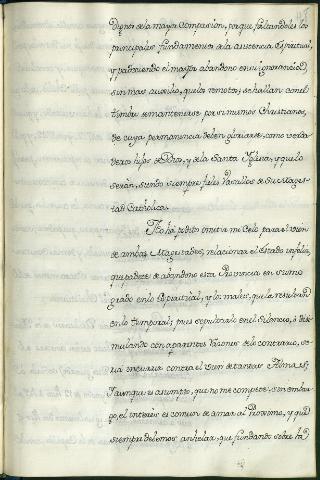 Dignos de la mayor Compasion, porque faltandoles los
principales fundamentos de la asistencia Espiritual,
y padeciendo el mayor abandono en su ignorancia,
sin mas auxilio, que los remotos, se hallan con el
timbre de mantenerse por si mismos Christianos,
de cuya permanencia deben gloriarse, como verda
deros hijos de Dios, y de la Santa Yglesia, y que lo
serán, siendo siempre fieles Vasallos de Su Mages
tad Catholica.
No há podido omitir mi Celo para el vien
de ambas Magestades, relacionar el Estado infeliz,
que padece de abandono esta Provincia en sumo
grado en lo Espiritual, y los males, que la resultan
en lo temporal; pues sepultarlo en el Silencio, ó disi
mulando con aparentes razones de lo contrario, se
ria encurrir contra el vien de tantas Almas;
Y aunque es asumpto, que no me compete, sin embar
go, el interés es comun de amar al Proximo, y que
siempre debemos anhelar, que fundando sobre la